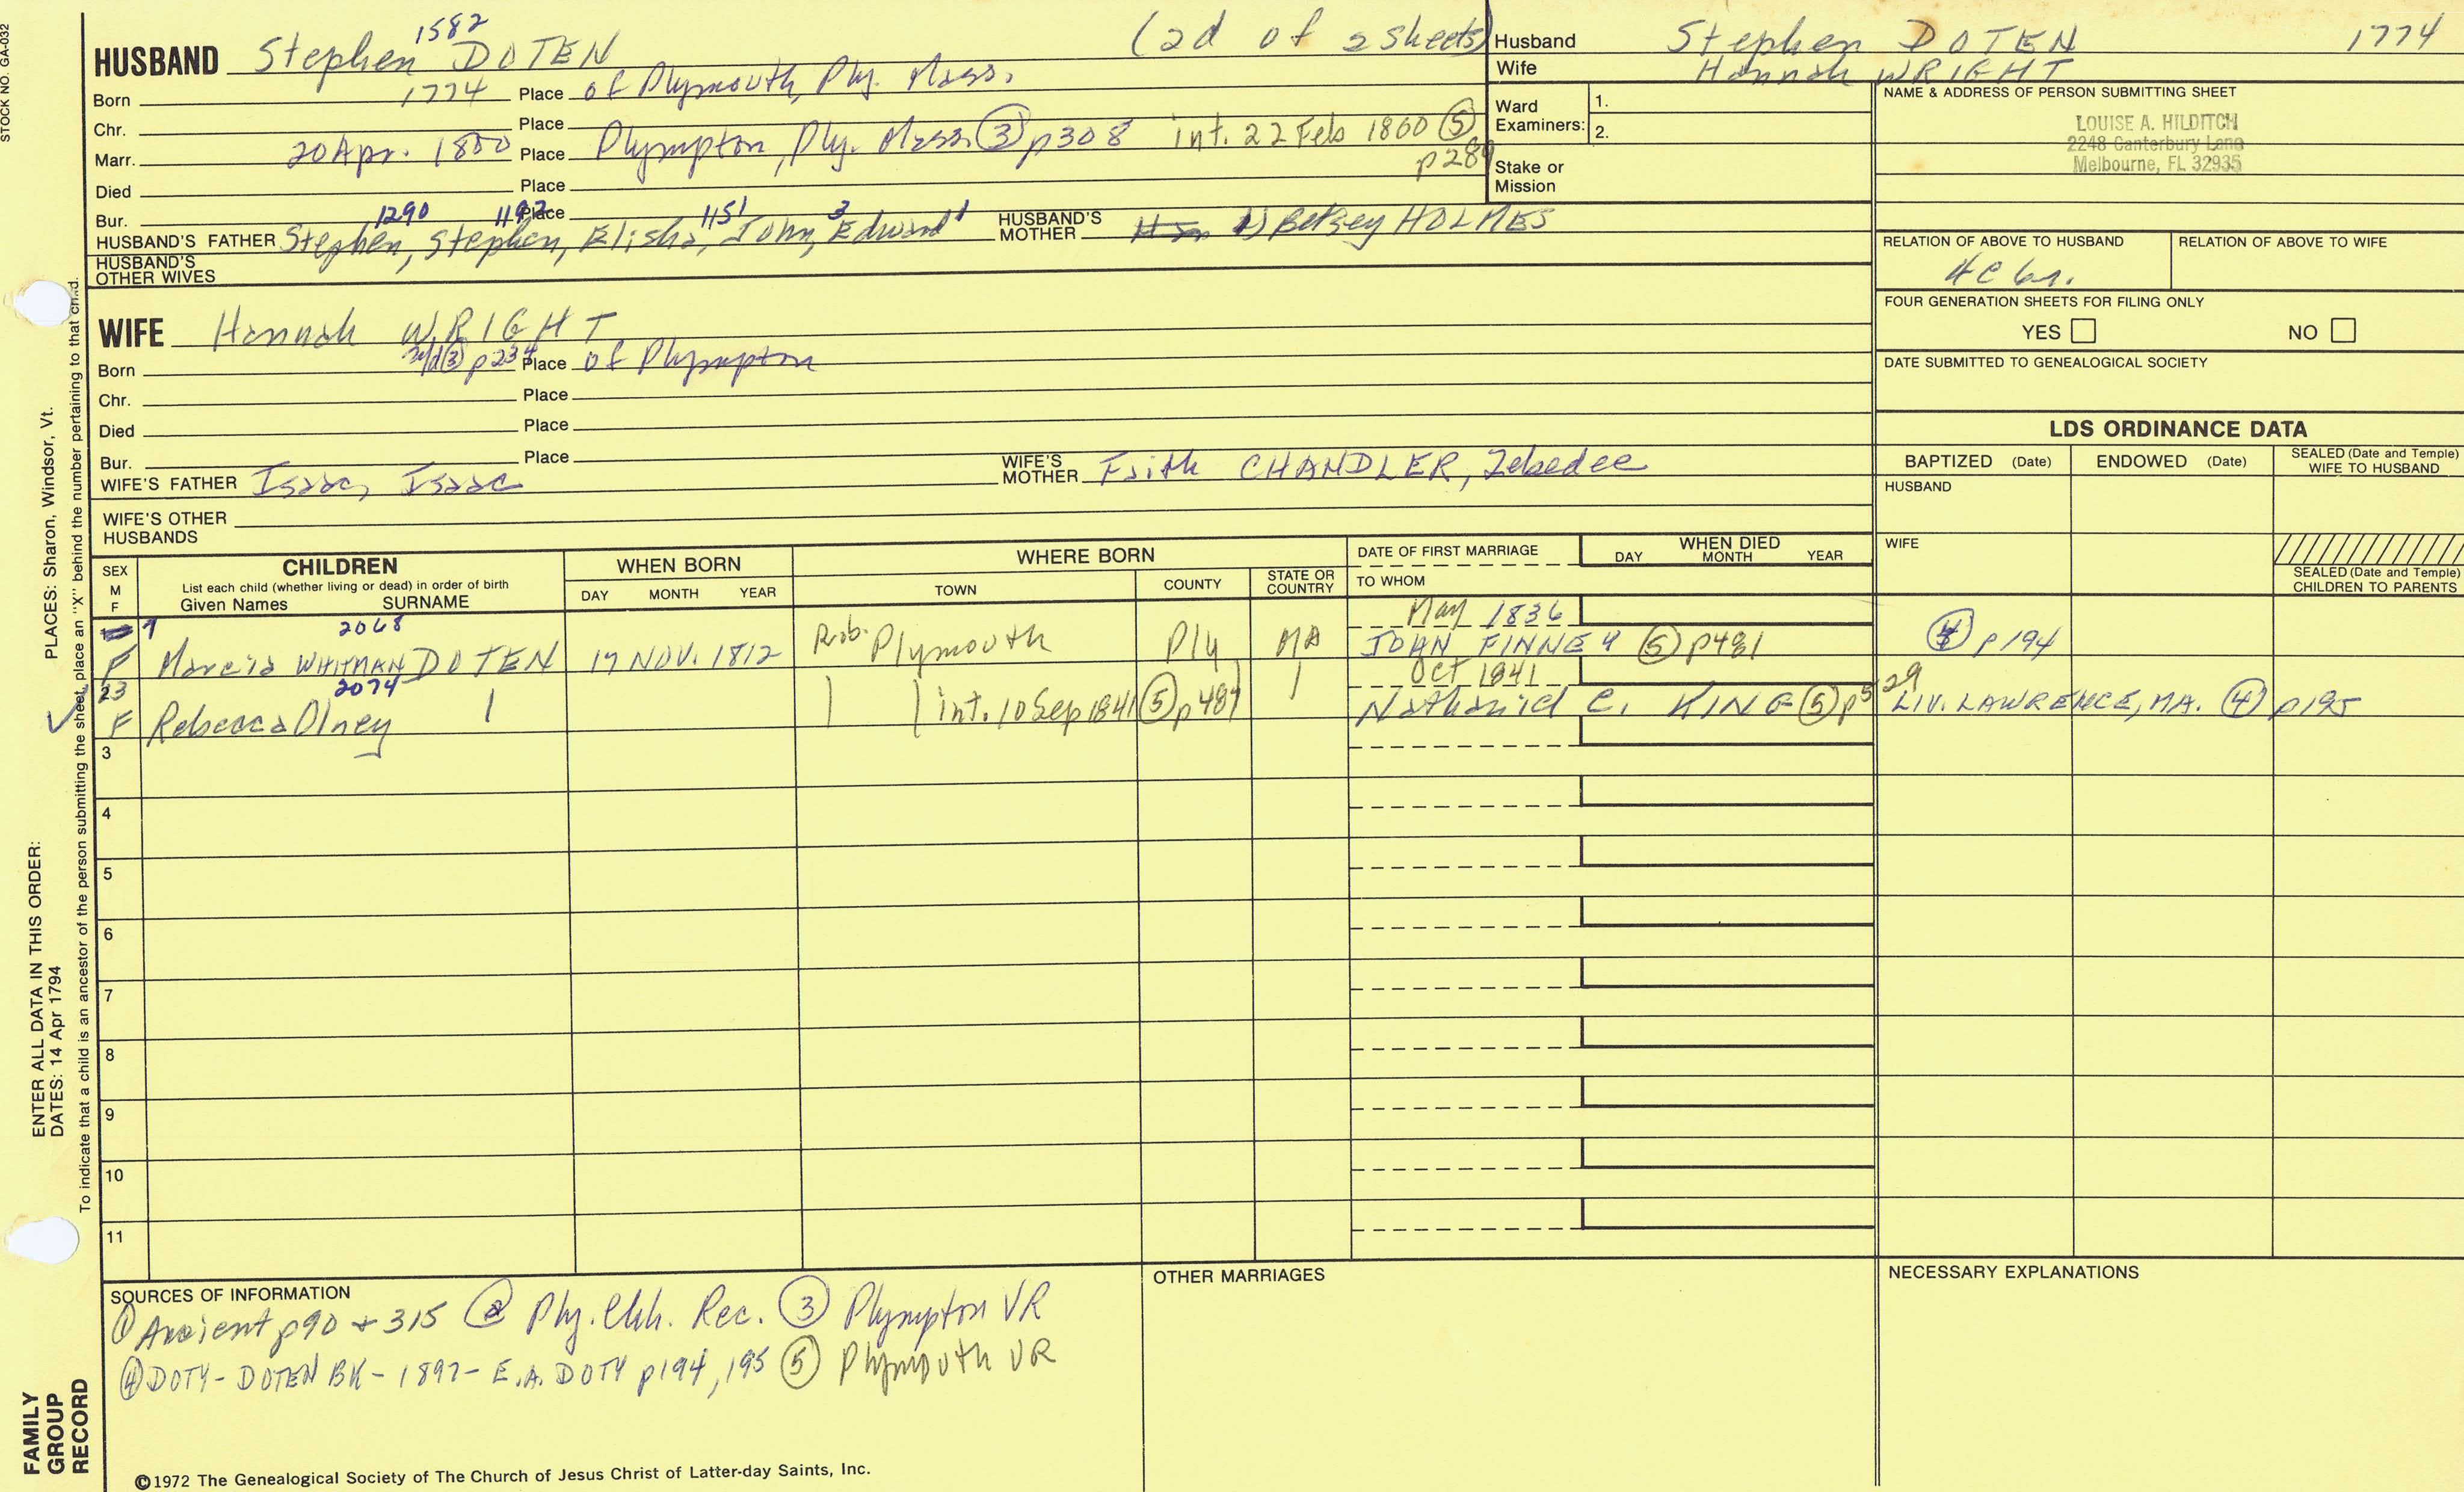 STOCK NO. GA-032
1582
HUSBAND Stephen DOTEN (2d of 2 sheets)
Born 1774 Place of Plymouth, Ply. Mass.
Chr. Place
Marr. 20 Apr. 1800 Place Plympton, Ply. Mass. ③ p308 int. 22 Feb 1800 ⑤ p289
Died Place
Bur. Place
1290 1192 1151 3 1
HUSBAND'S FATHER Stephen, Stephen, Elisha, John, Edward HUSBAND'S MOTHER 1) Betsey HOLMES
HUSBAND'S OTHER WIVES
WIFE Hannah WRIGHT
Born n/d ③ p234 Place of Plympton
Chr. Place
Died Place
Bur. Place
WIFE'S FATHER Isaac, Isaac WIFE'S MOTHER Faith CHANDLER, Zebedee
WIFE'S OTHER HUSBANDS
Husband Stephen DOTEN 1774
Wife Hannah WRIGHT
Ward Examiners: 1.
2.
Stake or Mission
NAME & ADDRESS OF PERSON SUBMITTING SHEET
LOUISE A. HILDITCH
2248 Canterbury Lane
Melbourne, FL 32935
RELATION OF ABOVE TO HUSBAND RELATION OF ABOVE TO WIFE
4C 6r.
FOUR GENERATION SHEETS FOR FILING ONLY
YES NO
DATE SUBMITTED TO GENEALOGICAL SOCIETY
LDS ORDINANCE DATA
BAPTIZED (Date) ENDOWED (Date) SEALED (Date and Temple) WIFE TO HUSBAND
HUSBAND
WIFE
SEALED (Date and Temple) CHILDREN TO PARENTS
SEX M F CHILDREN WHEN BORN WHERE BORN DATE OF FIRST MARRIAGE WHEN DIED
List each child (whether living or dead) in order of birth
Given Names SURNAME DAY MONTH YEAR TOWN COUNTY STATE OR COUNTRY TO WHOM DAY MONTH YEAR
9 2068 May 1836
F Marcia WHITMAN DOTEN 17 NOV. 1812 Prob. Plymouth Ply MA JOHN FINNEY ⑤ p481 ④ p194
23 2074 Oct 1841
F Rebecca Olney int. 10 Sep 1841 ⑤ p487 Nathaniel C. KING ⑤ p529 LIV. LAWRENCE, MA. ④ p195
3
4
5
6
7
8
9
10
11
SOURCES OF INFORMATION
① Ancient p90 + 315 ② Ply. Chh. Rec. ③ Plympton VR
④ DOTY-DOTEN BK - 1897 - E.A. DOTY p194, 195 ⑤ Plymouth VR
OTHER MARRIAGES
NECESSARY EXPLANATIONS
©1972 The Genealogical Society of The Church of Jesus Christ of Latter-day Saints, Inc.
FAMILY GROUP RECORD
ENTER ALL DATA IN THIS ORDER:
DATES: 14 Apr 1794
PLACES: Sharon, Windsor, Vt.
To indicate that a child is an ancestor of the person submitting the sheet, place an "X" behind the number pertaining to that child.